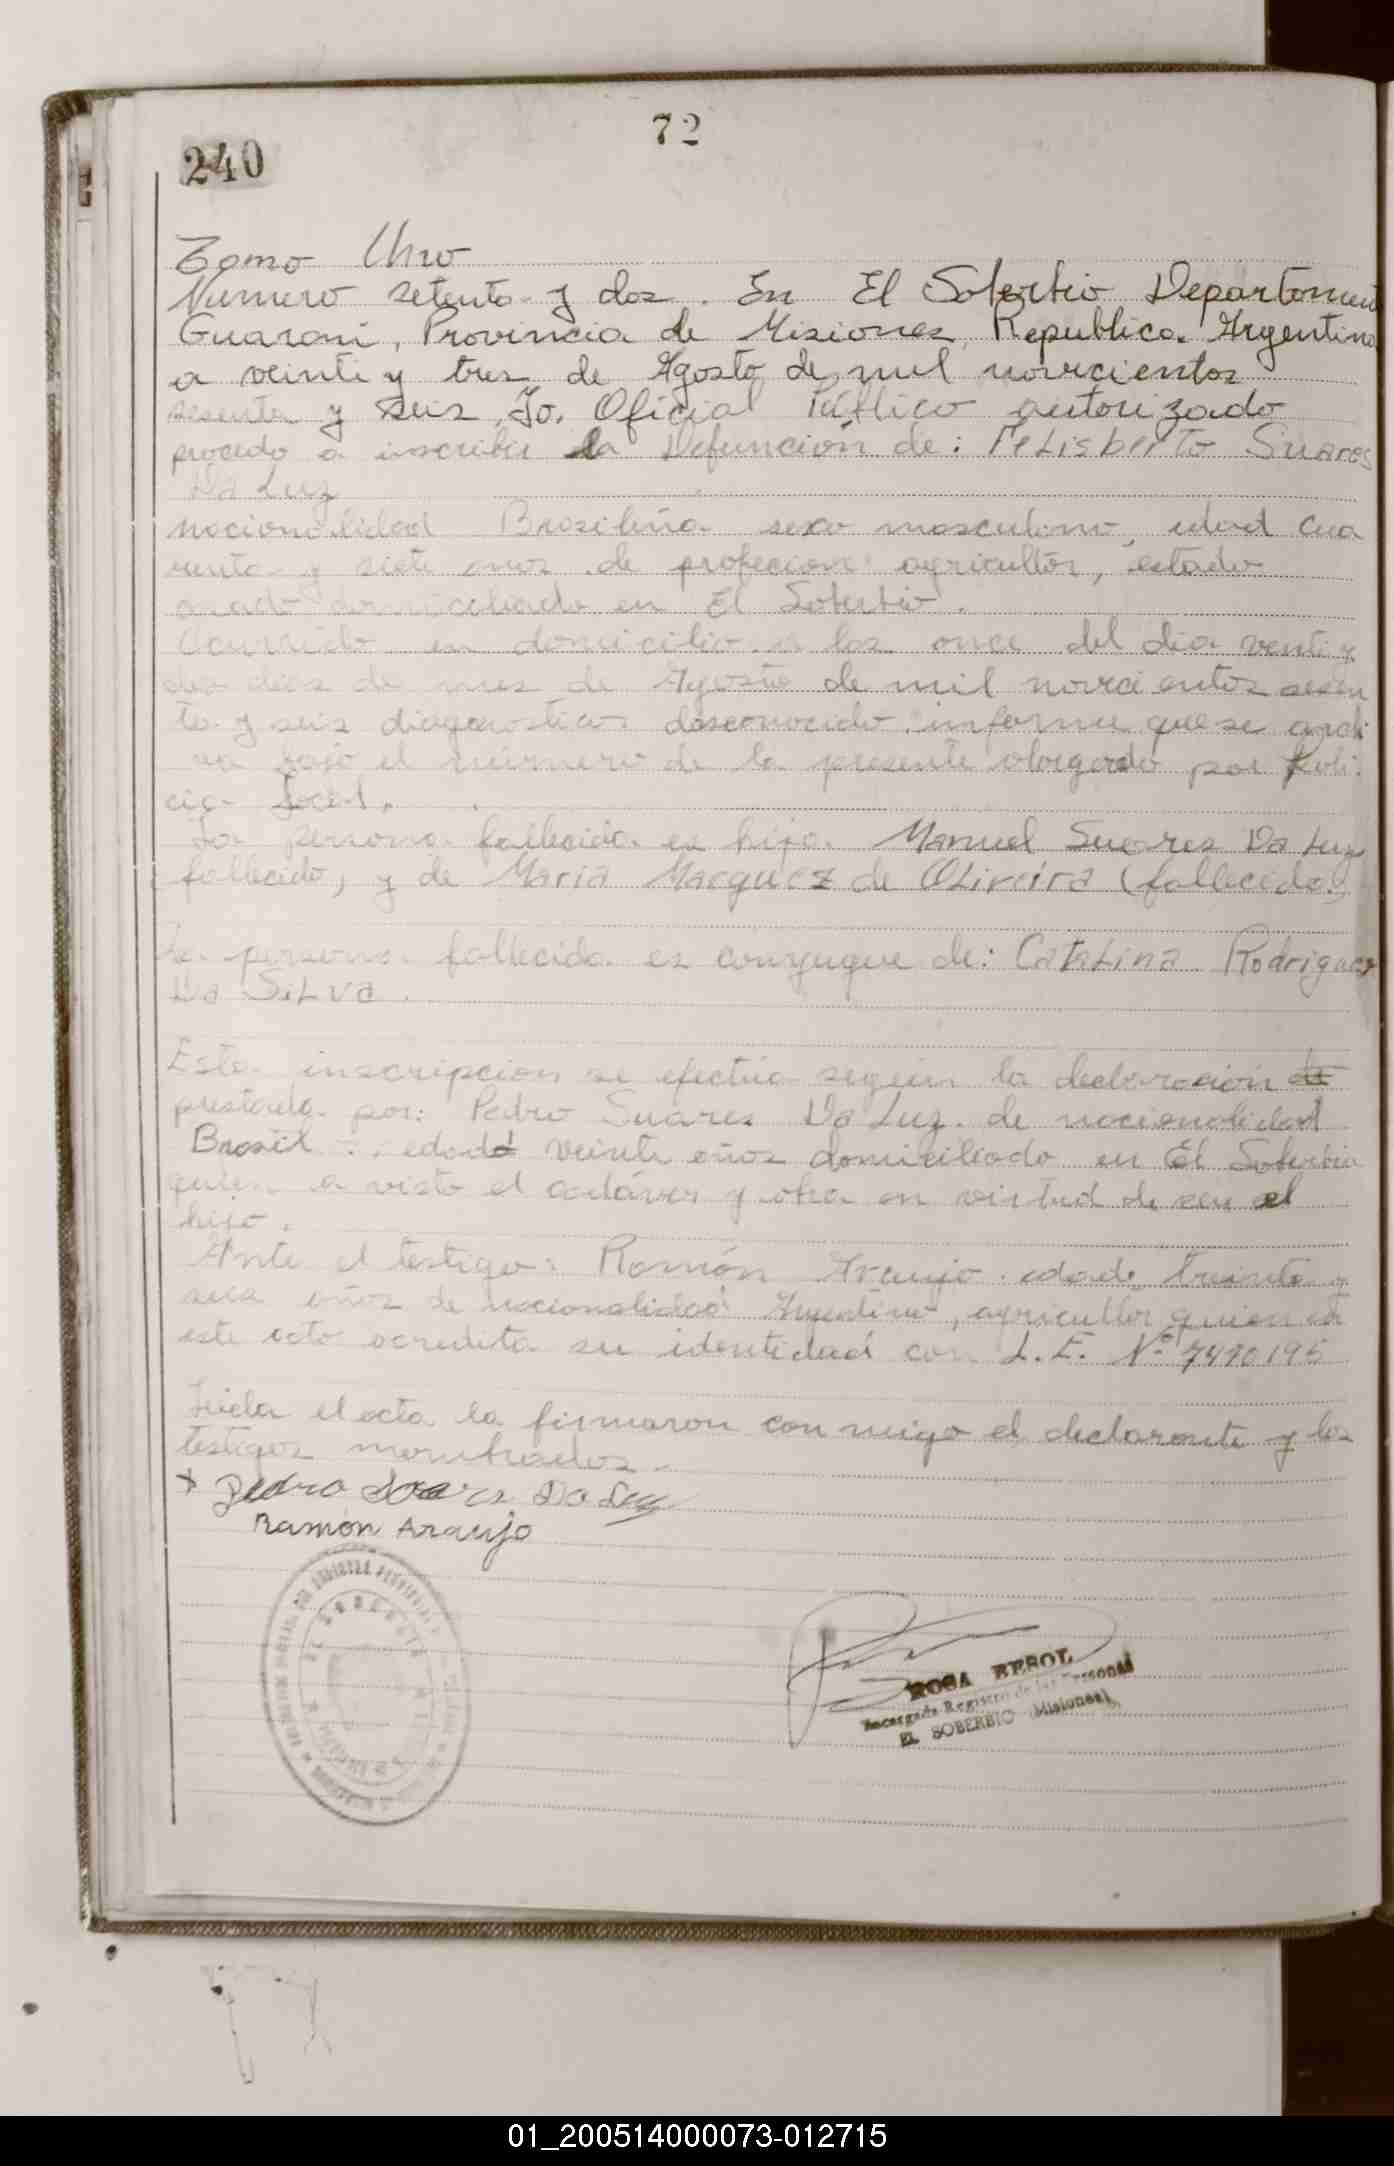 72
240
Tomo Uno
Numero setenta y dos. En El Soberbio Departament
Guarani, Provincia de Misiones, Republica Argentina
a veinti y tres de Agosto de mil novecientos
sesenta y seis, Yo. Oficial Público autorizado
procedo a inscribir la Defunción de: Felisberto Suares
Da Luz
nacionalidad Brasileña sexo masculino, edad cua
renta y siete años de profecion agricultor, estado
casado domiciliado en El Soberbio.
Ocurrido en domicilio a las once del dia venti y
dos dias de mes de Agosto de mil novecientos sesen
ta y seis diagnostico desconocido informe que se archi
va bajo el número de la presente otorgado por Poli
cia Local.
La persona fallecida es hijo Manuel Suares Da Luz
fallecido, y de Maria Marquez de Oliveira (fallecida)
La persona fallecida es conyugue de: Catalina Rodriguez
Da Silva.
Esta inscripcion se efectúa según la declaración de
prestada por: Pedro Suares Da Luz de nacionalidad
Brasil edad veinte años domiciliado en El Soberbio
quien a visto el cadáver y obra en virtud de ser el
hijo.
Ante el testigo: Ramón Araujo edad treinta y
seis años de nacionalidad Argentino, agricultor quien en
este acto acredita su identidad con L.E. Nº 7470195
Leida el acta la firmaron con migo el declarante y los
testigos nombrados.
x Pedro Soares Da Luz
Ramón Araujo
ROSA BESOL
Encargada Registro de las Personas
EL SOBERBIO (Misiones)
01_200514000073-012715